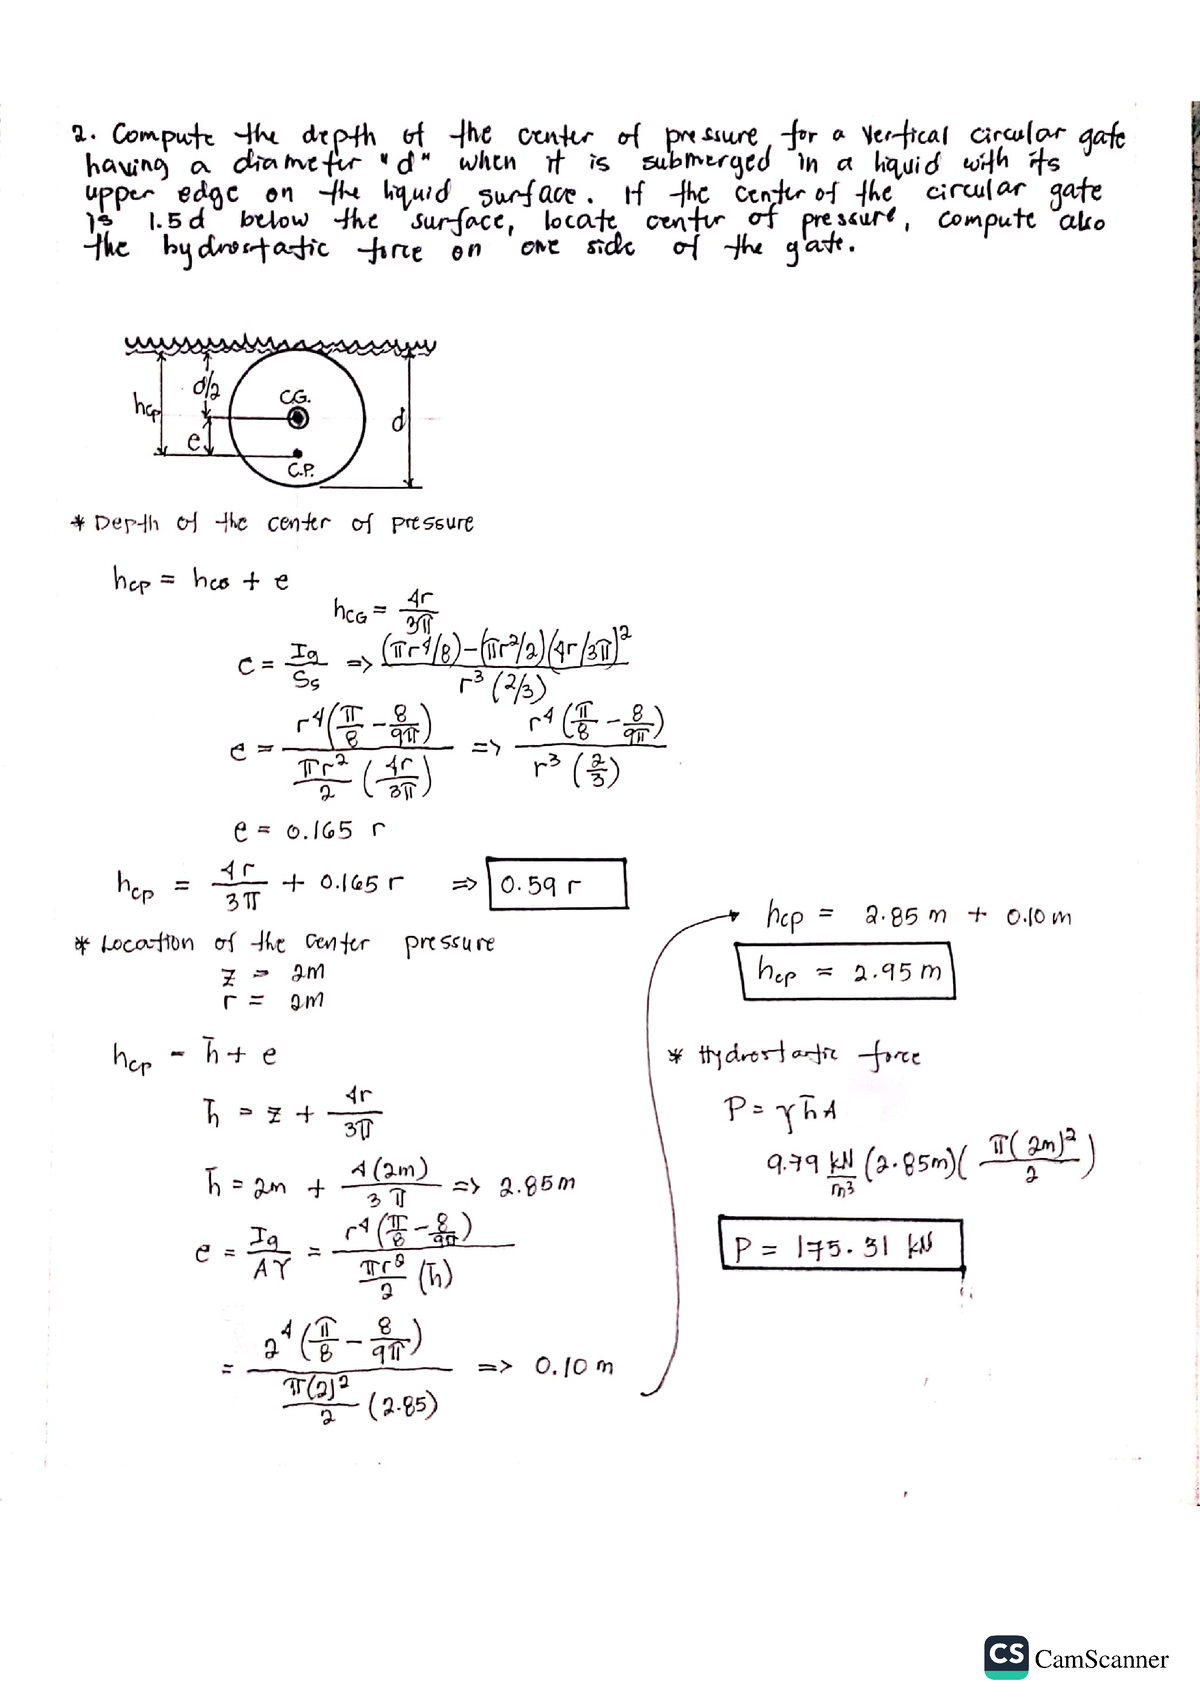 2. Compute the depth of the center of pressure, for a vertical circular gate
having a diameter "d" when it is submerged in a liquid with its
upper edge on the liquid surface. If the center of the circular gate
is 1.5d below the surface, locate center of pressure, compute also
the hydrostatic force on one side of the gate.
d/2
hcp
CG.
d
e
C.P.
* Depth of the center of pressure
hcp = hcG + e
hCG = 4r/3π
e = Ig/Ss => ((πr⁴/8)-(πr²/2)(4r/3π)²)/(r³(2/3))
e = (r⁴(π/8 - 8/9π))/(πr²/2 (4r/3π)) => (r⁴(π/8 - 8/9π))/(r³(2/3))
e = 0.165 r
hcp = 4r/3π + 0.165 r => 0.59 r
* Location of the center pressure
z = 2m
r = 2m
hcp = h̄ + e
h̄ = z + 4r/3π
h̄ = 2m + 4(2m)/3π => 2.85m
e = Ig/AY = (r⁴(π/8 - 8/9π))/(πr²/2 (h̄))
= (2⁴(π/8 - 8/9π))/(π(2)²/2 (2.85)) => 0.10 m
hcp = 2.85 m + 0.10 m
hcp = 2.95 m
* Hydrostatic force
P = γh̄A
9.79 kN/m³ (2.85m)(π(2m)²/2)
P = 175.31 kN
CS CamScanner